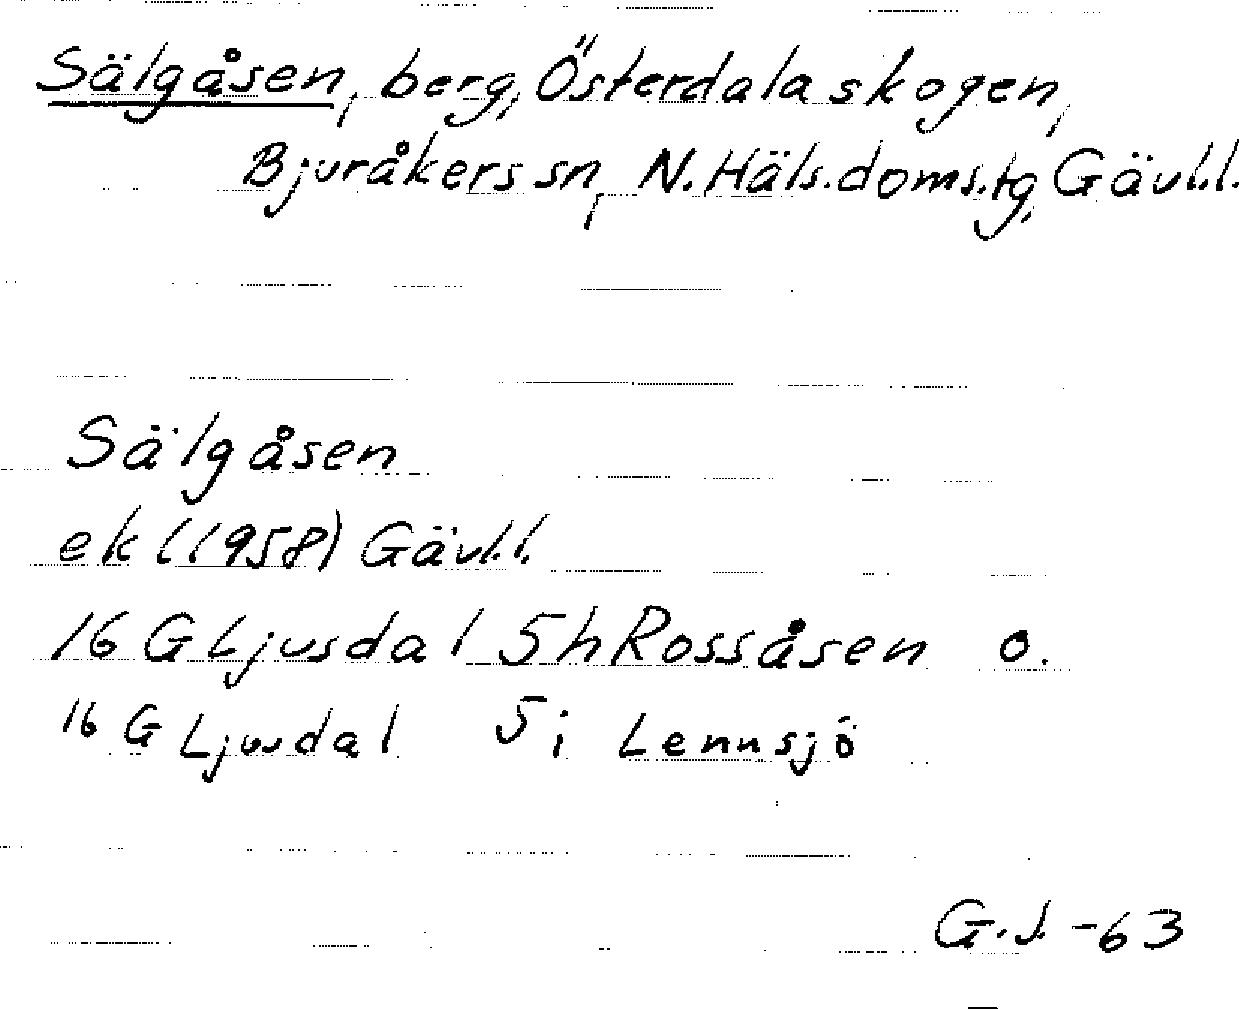 Sälgåsen, berg, Österdalaskogen,
Bjuråkers sn, N. Häls. doms.tg, Gävl.l.
Sälgåsen
ek (1958) Gävl.l.
16 G Ljusdal 5h Rossåsen o.
16 G Ljusdal 5i Lennsjö
G.J. -63